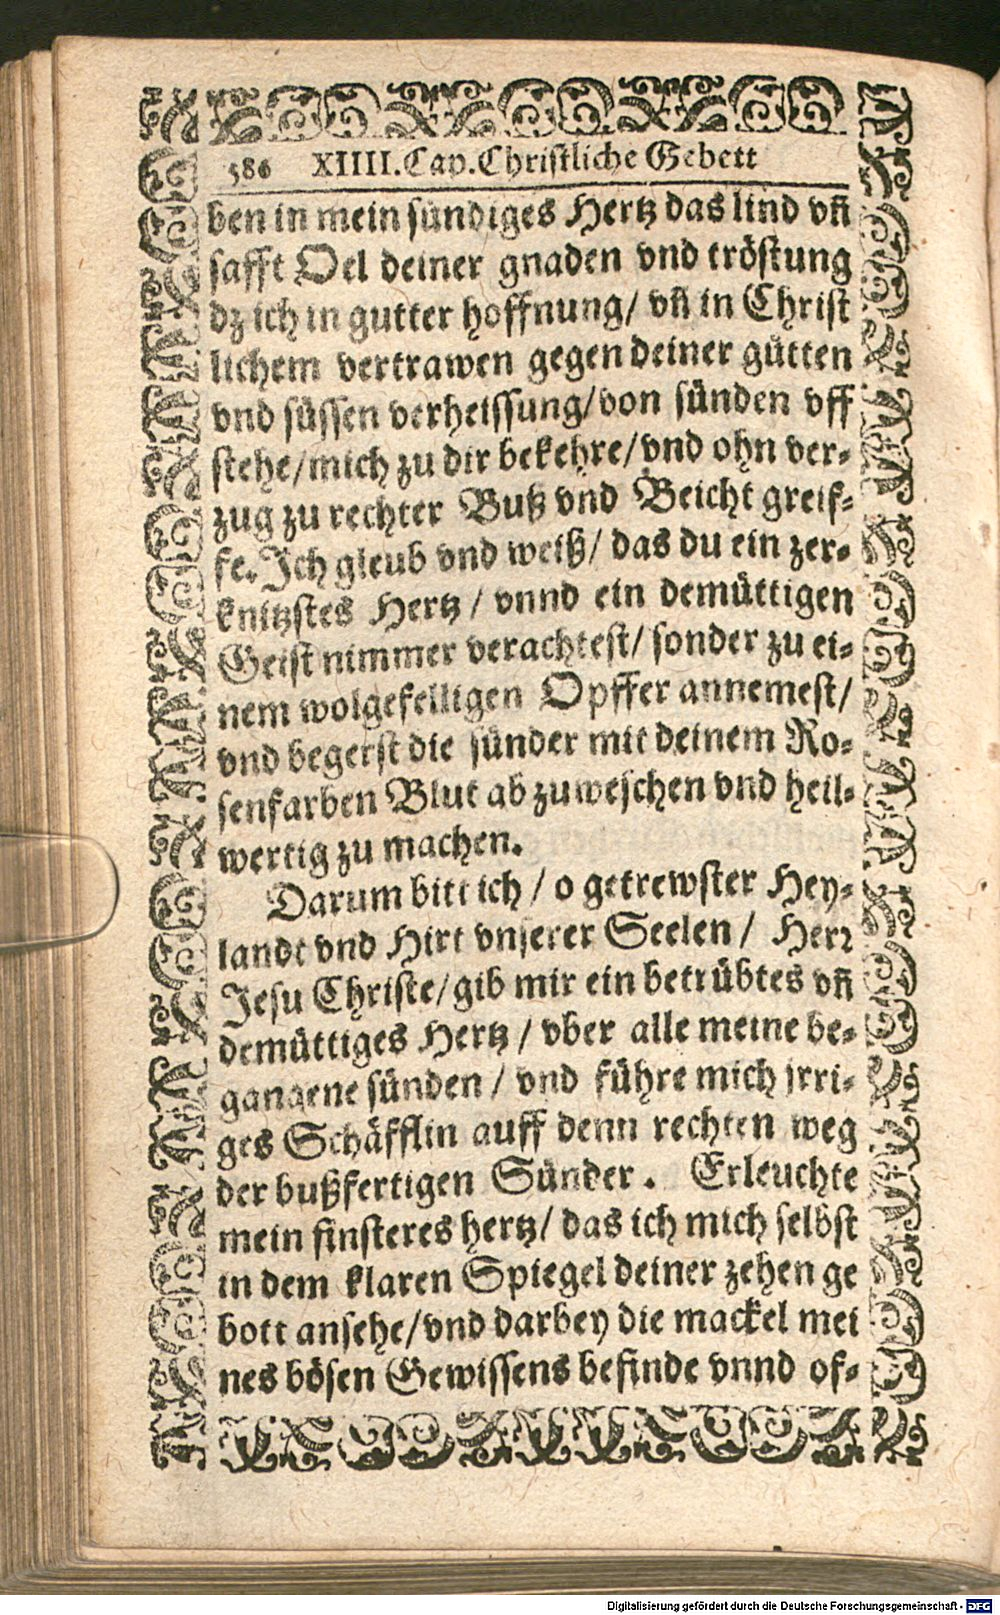 586 XIIII.Cap.Christliche Gebett
ben in mein sündiges Hertz das lind vñ
safft Oel deiner gnaden vnd tröstung
dz ich in gutter hoffnung/ vñ in Christ
lichem vertrawen gegen deiner gütten
vnd süssen verheissung/von sünden vff
stehe/mich zu dir bekehre/vnd ohn ver-
zug zu rechter Buß vnd Beicht greif-
fe. Ich gleub vnd weiß/ das du ein zer-
knitzstes Hertz / vnnd ein demüttigen
Geist nimmer verachtest/ sonder zu ei-
nem wolgefelligen Opffer annemest/
vnd begerst die sünder mit deinem Ro-
senfarben Blut ab zuweschen vnd heil-
wertig zu machen.
Darum bitt ich / o getrewster Hey-
landt vnd Hirt vnserer Seelen / Herꝛ
Jesu Christe/gib mir ein betrübtes vñ
demüttiges Hertz / vber alle meine be-
gangene sünden / vnd führe mich jrri-
ges Schäfflin auff denn rechten weg
der bußfertigen Sünder. Erleuchte
mein finsteres hertz/ das ich mich selbst
in dem klaren Spiegel deiner zehen ge
bott ansehe/vnd darbey die mackel mei
nes bösen Gewissens befinde vnnd of-
Digitalisierung gefördert durch die Deutsche Forschungsgemeinschaft - DFG